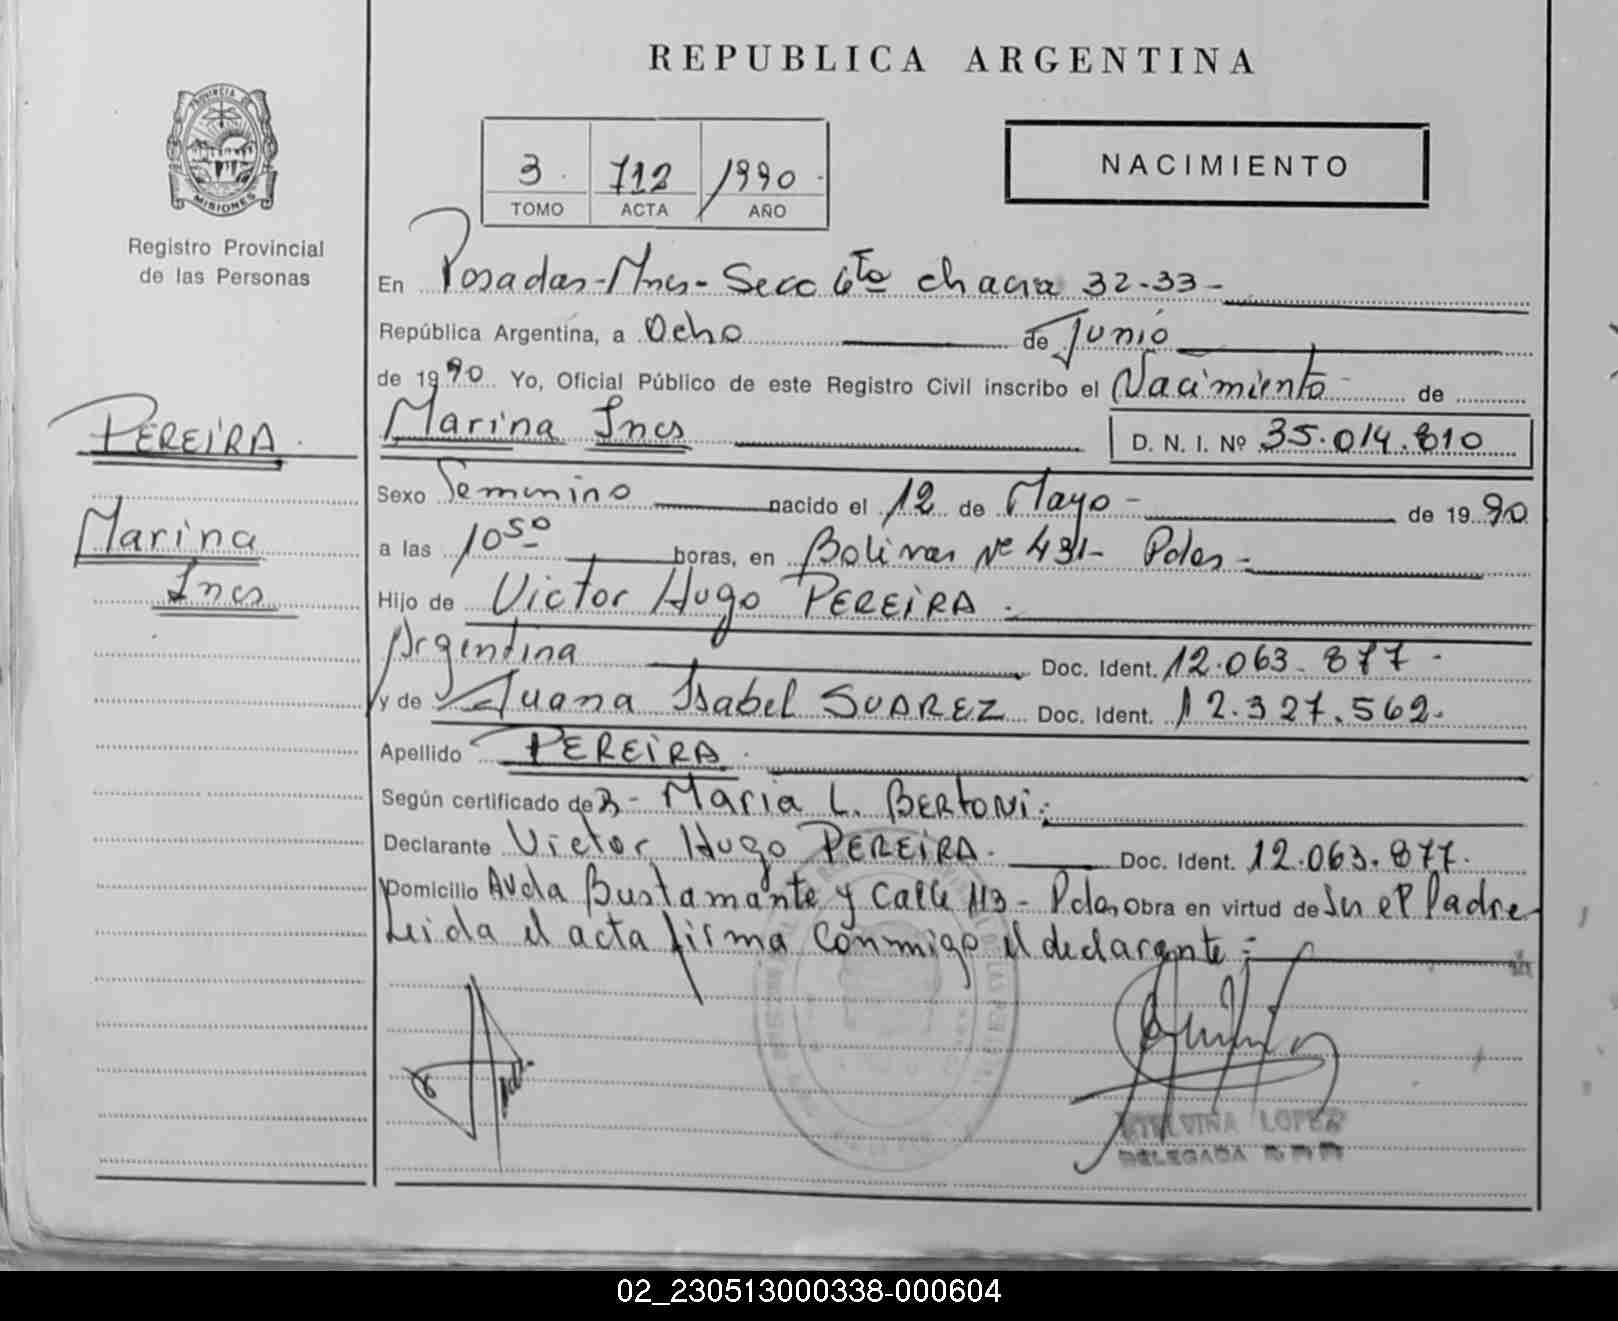 REPUBLICA ARGENTINA
PROVINCIA DE
MISIONES
Registro Provincial
de las Personas
3 712 1990
TOMO ACTA AÑO
NACIMIENTO
En Posadas-Mnes-Secc 6ta chacra 32-33-
República Argentina, a Ocho de Junio
de 1990 Yo, Oficial Público de este Registro Civil inscribo el Nacimiento de
Marina Ines D. N. I. Nº 35.014.810
PEREIRA
Marina
Ines
Sexo Femenino nacido el 12 de Mayo - de 1990
a las 10⁵⁰ horas, en Bolivar Nº 431- Pdas -
Hijo de Victor Hugo PEREIRA.
Argentina Doc. Ident. 12.063.877-
y de Juana Isabel SUAREZ Doc. Ident. 12.327.562-
Apellido PEREIRA.
Según certificado de Maria L. BERTONI.
Declarante Victor Hugo PEREIRA. Doc. Ident. 12.063.877.
Domicilio Avda Bustamante y Calle 113 - Pdas, Obra en virtud de Ser el Padre
Leida el acta firma conmigo el declarante.
ETELVINA LOPEZ
DELEGADA
02_230513000338-000604